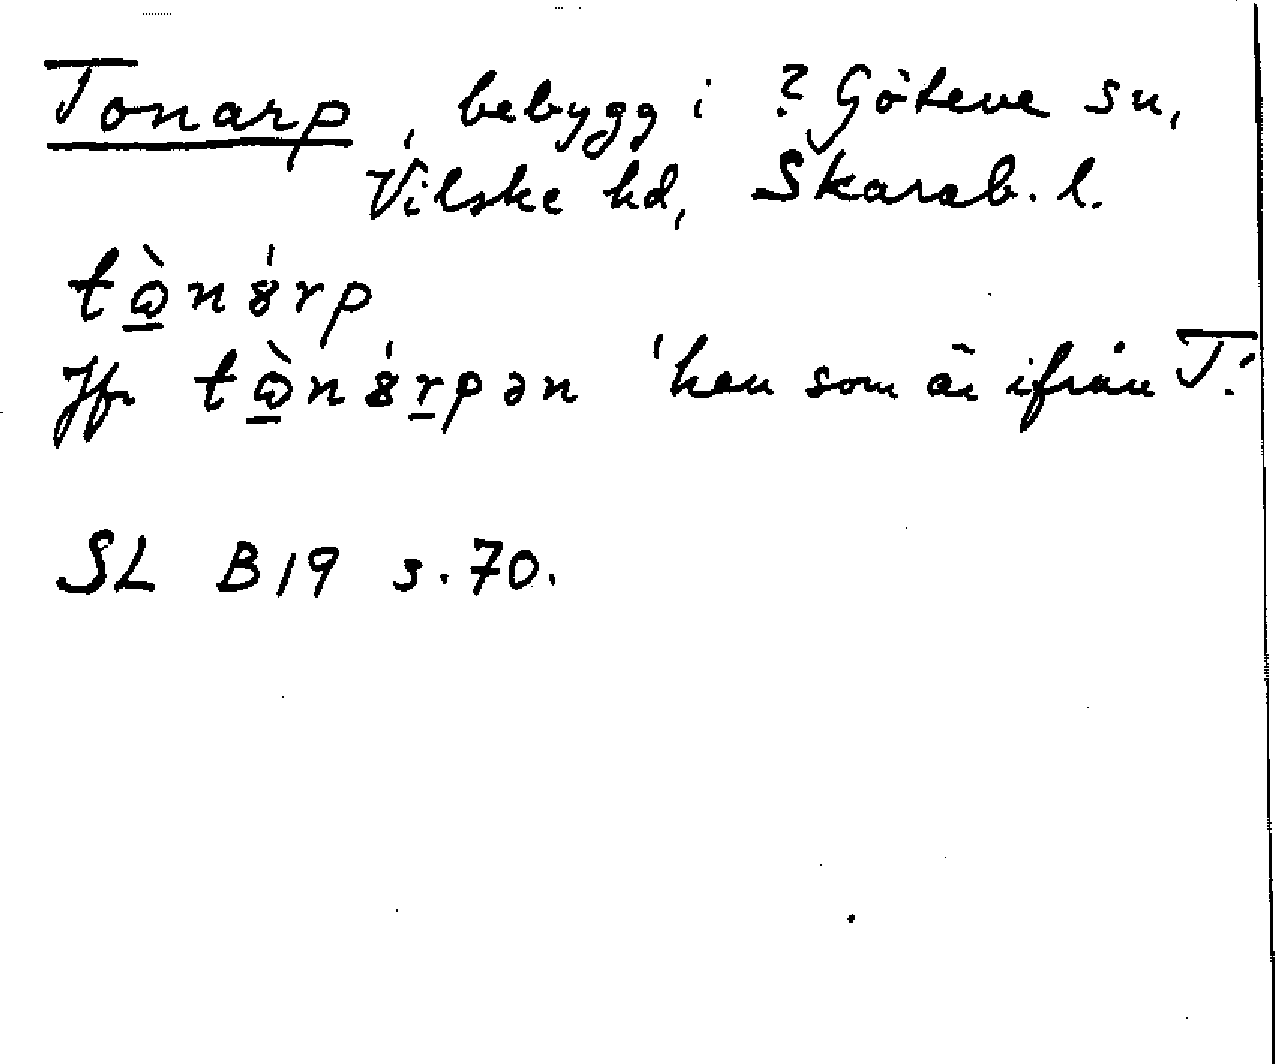 Tonarp, bebygg i ? Göteve sn,
Vilske hd, Skarab. l.
tὼ̱n8́rp
Jfr tὼ̱n8́ṟpən 'han som är ifrån T.'
SL B19 s. 70.